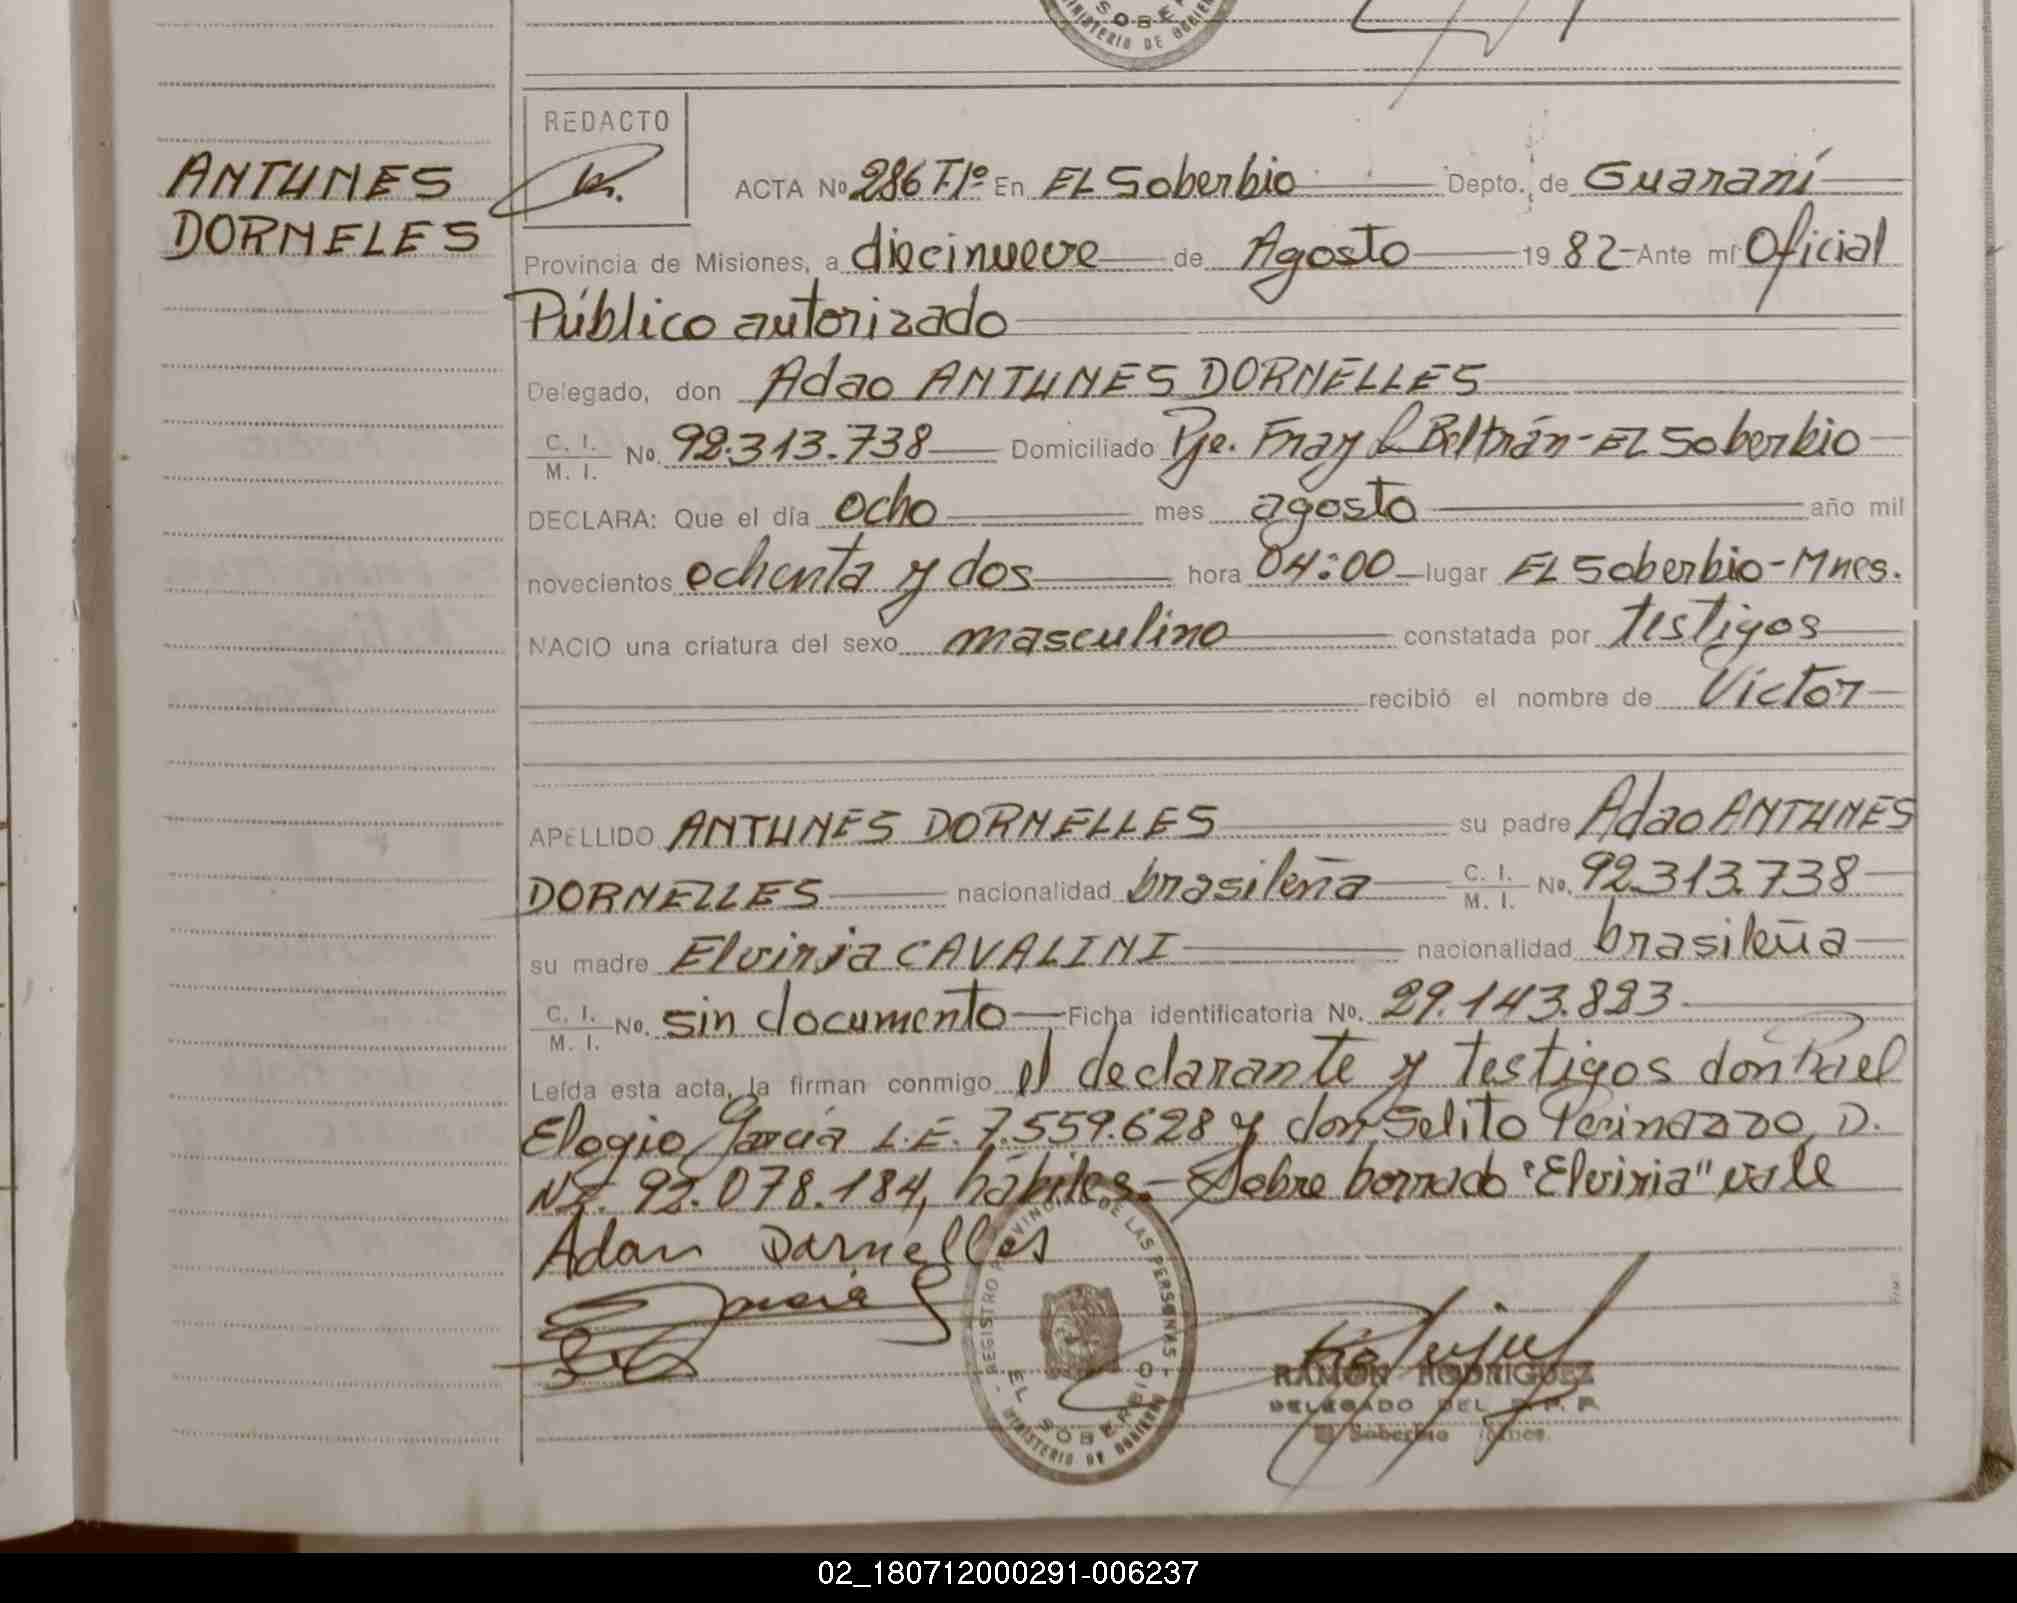 SOBE
MINISTERIO DE GOBIER
REDACTO
ANTUNES
DORNELES
ACTA No 286 Tº1º En EL Soberbio Depto. de Guaraní
Provincia de Misiones, a diecinueve de Agosto 1982 Ante mí Oficial
Público autorizado
Delegado, don Adao ANTUNES DORNELLES
C. I. M. I. No. 92.313.738 Domiciliado Pje. Fray L Beltrán - EL Soberbio
DECLARA: Que el día ocho mes agosto año mil
novecientos ochenta y dos hora 04:00 lugar EL Soberbio - Mnes.
NACIO una criatura del sexo masculino constatada por testigos
recibió el nombre de Víctor
APELLIDO ANTUNES DORNELLES su padre Adao ANTUNES
DORNELLES nacionalidad brasileña C. I. M. I. No. 92.313.738
su madre Elviria CAVALINI nacionalidad brasileña
C. I. M. I. No. sin documento Ficha identificatoria No. 29.143.823
Leída esta acta, la firman conmigo el declarante y testigos don
Elogio García L.E. 7.559.628 y don Selito Perinazzo, D.
N.I. 92.078.184, hábiles.- Sobre borrado "Elviria" vale
Adan Darnelles
REGISTRO PROVINCIAL DE LAS PERSONAS
EL SOBERBIO
MINISTERIO DE GOBIERNO
RAMON RODRIGUEZ
DELEGADO DEL R. P. P.
El Soberbio Mnes.
02_180712000291-006237